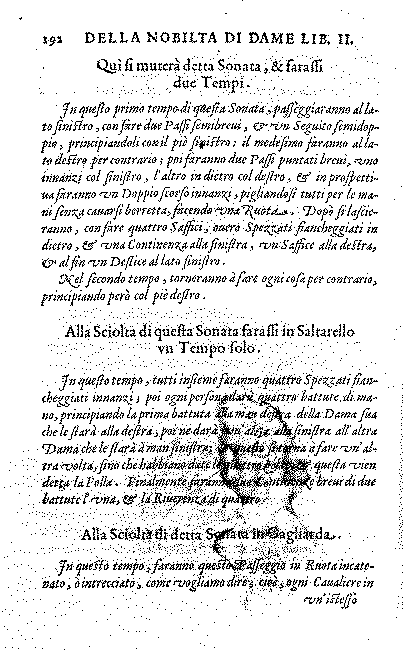 192 DELLA NOBILTA DI DAME LIB. II.
Quì si muterà detta Sonata, & farassi
due Tempi.
In questo primo tempo di questa Sonata, passeggiaranno al la-
to sinistro, con fare due Passi semibreui, & vn Seguito semidop-
pio, principiandoli con il piè sinistro; il medesimo faranno al la-
to destro per contrario; poi faranno due Passi puntati breui, vno
innanzi col sinistro, l'altro in dietro col destro, & in prospetti-
ua faranno vn Doppio scorso innanzi, pigliandosi tutti per le ma-
ni senza cauarsi berretta, facendo vna Ruota. Dopò si lascie-
ranno, con fare quattro Saffici, ouerò Spezzati fiancheggiati in
dietro, & vna Continenza alla sinistra, vn Saffice alla destra,
& al fin vn Destice al lato sinistro.
Nel secondo tempo, torneranno à fare ogni cosa per contrario,
principiando però col piè destro.
Alla Sciolta di questa Sonata farassi in Saltarello
vn Tempo solo.
In questo tempo, tutti insieme faranno quattro Spezzati fian-
cheggiati innanzi; poi ogni persona darà quattro battute di ma-
no, principiando la prima battuta alla man destra della Dama sua
che le starà alla destra; poi ne darà vn' alla sinistra all' altra
Dama che le starà à man sinistra; questo torna à fare vn' al-
tra volta, sino che habbiano date le quattro questa vien
detta la Folla. Finalmente faranno due Continenze breui di due
battute l'vna, & la Riuerenza di quattro.
Alla Sciolta di detta Sonata in Gagliarda.
In questo tempo, faranno questo Passeggio in Ruota incate-
nato, ò intrecciato, come vogliamo dire; cioè, ogni Caualiere in
vn'istesso